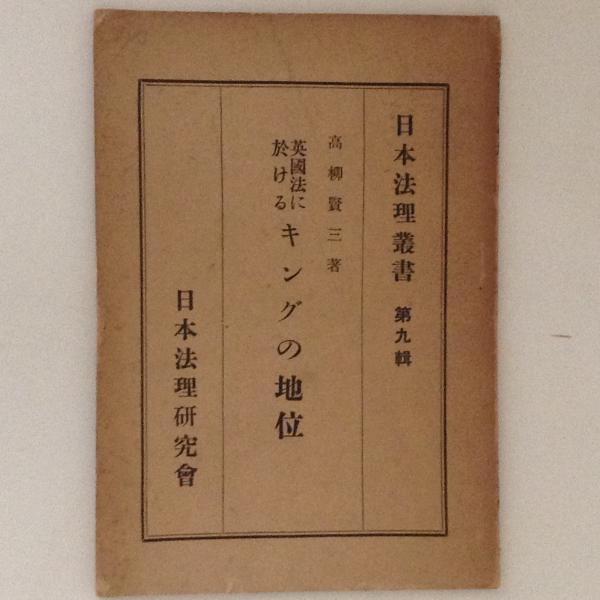 日本法理叢書 第九輯
高柳賢三著
英國法に
於ける
キングの地位
日本法理研究會